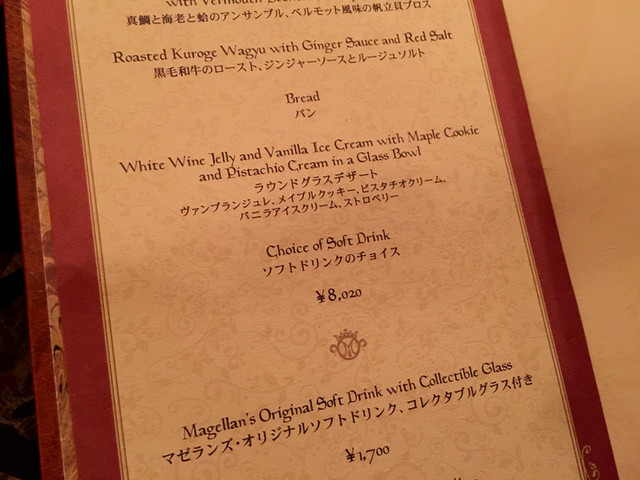 with Vermouth
真鯛と海老と蛤のアンサンブル、ベルモット風味の帆立貝ブロス
Roasted Kuroge Wagyu with Ginger Sauce and Red Salt
黒毛和牛のロースト、ジンジャーソースとルージュソルト
Bread
パン
White Wine Jelly and Vanilla Ice Cream with Maple Cookie
and Pistachio Cream in a Glass Bowl
ラウンドグラスデザート
ヴァンブランジュレ、メイプルクッキー、ピスタチオクリーム、
バニラアイスクリーム、ストロベリー
Choice of Soft Drink
ソフトドリンクのチョイス
¥8,020
Magellan's Original Soft Drink with Collectible Glass
マゼランズ・オリジナルソフトドリンク、コレクタブルグラス付き
¥1,700